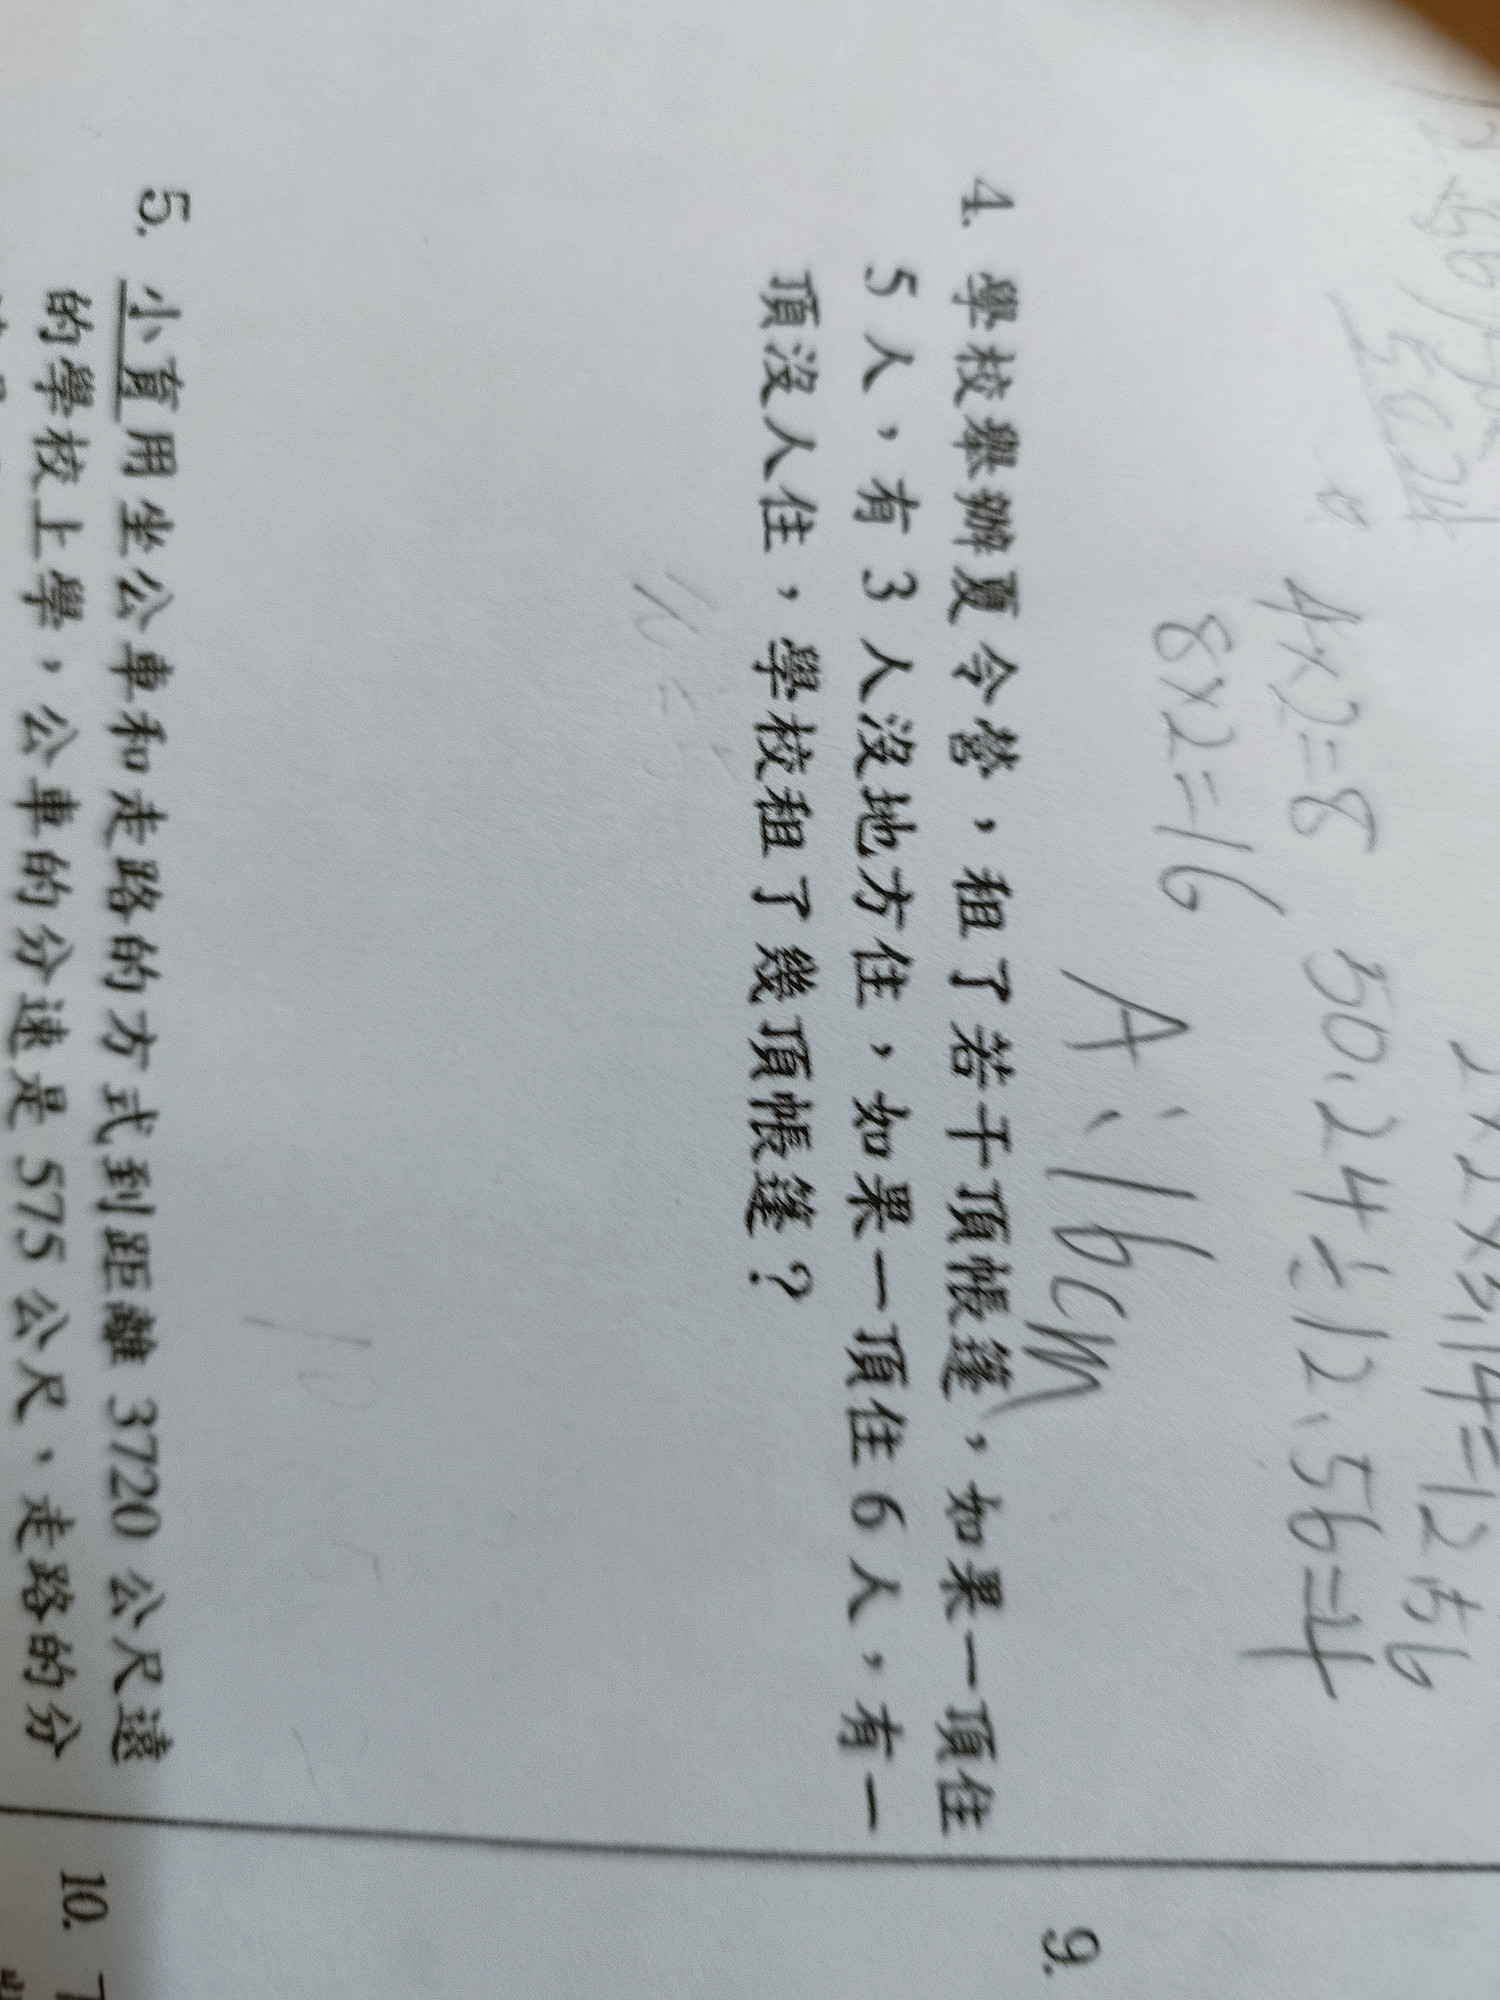 4×2=8 50.24÷12.56=4
8×2=16
A:16cm
4. 學校舉辦夏令營，租了若干頂帳篷，如果一頂住
5人，有3人沒地方住，如果一頂住6人，有一
頂沒人住，學校租了幾頂帳篷？
5. 小育用坐公車和走路的方式到距離 3720 公尺遠
的學校上學，公車的分速是 575 公尺，走路的分
9.
10.